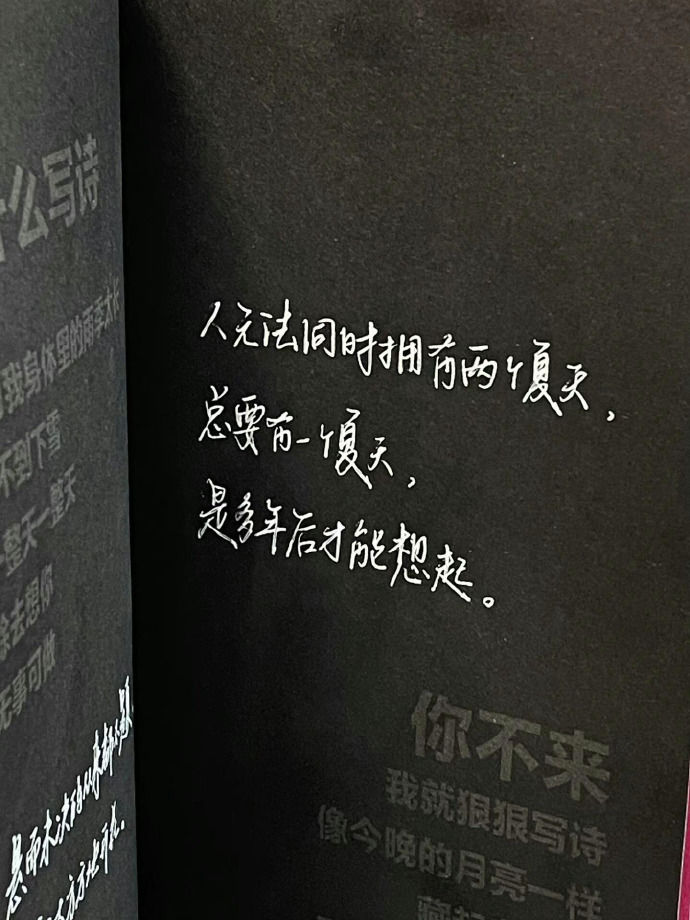 么写诗
我身体里的雨季太长
不到下雪
一整天一整天
除去想你
无事可做
悬而未决的从来都
人无法同时拥有两个夏天，
总要有一个夏天，
是多年后才能想起。
你不来
我就狠狠写诗
像今晚的月亮一样